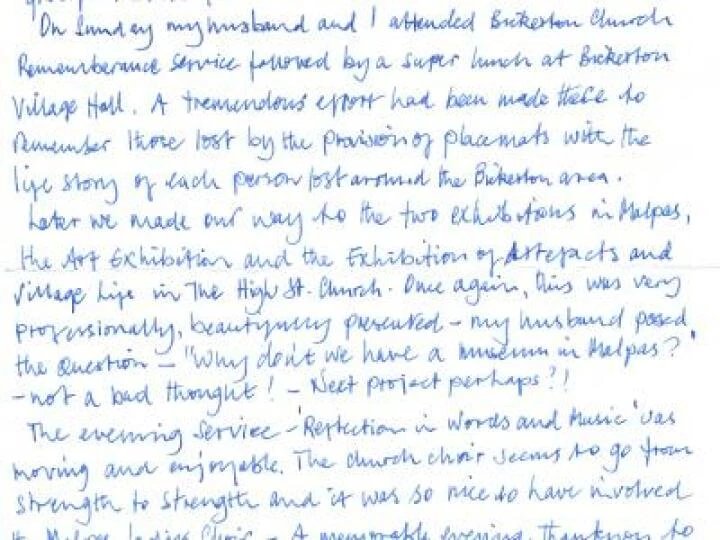 On Sunday my husband and I attended Bickerton Church
Rememberance Service followed by a super lunch at Bickerton
Village Hall. A tremendous effort had been made there to
remember those lost by the provision of placemats with the
life story of each person lost around the Bickerton area.
Later we made our way to the two exhibitions in Malpas,
the Art Exhibition and the Exhibition of Artefacts and
Village Life in The High St. Church. Once again, this was very
professionally, beautifully presented - my husband posed
the question - "Why don't we have a museum in Malpas?"
- not a bad thought! - Next project perhaps?!
The evening Service - 'Reflection in Words and Music' was
moving and enjoyable. The church choir seems to go from
strength to strength and it was so nice to have involved
the Malpas Ladies Choir - A memorable evening, thankyou to